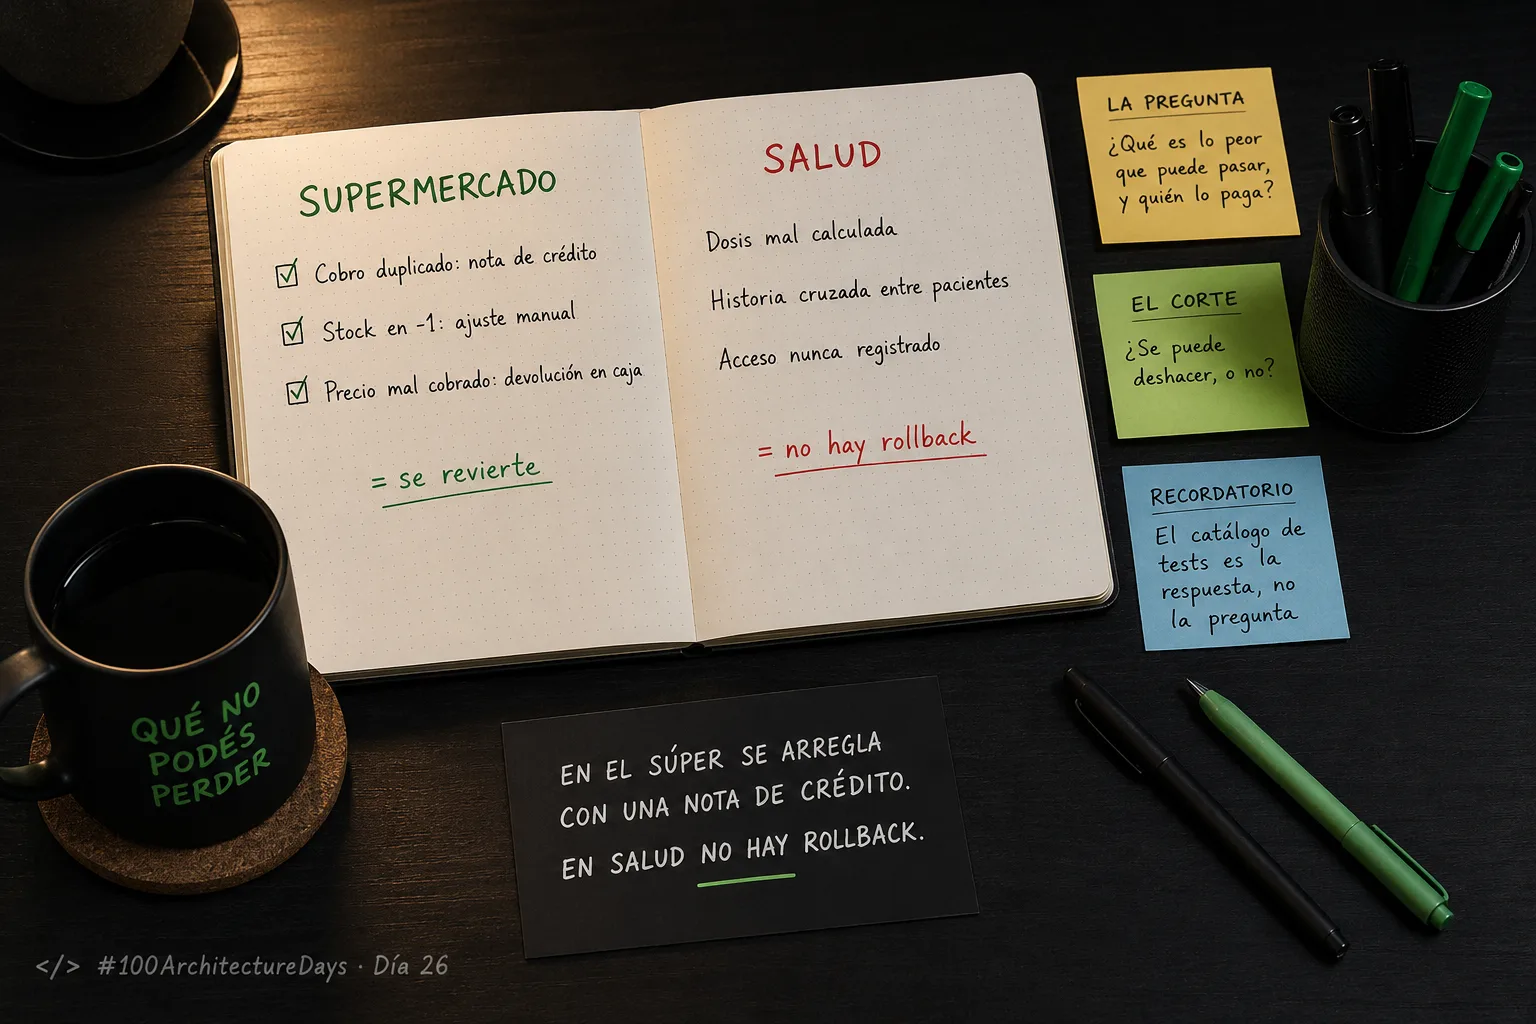 SUPERMERCADO
Cobro duplicado: nota de crédito
Stock en -1: ajuste manual
Precio mal cobrado: devolución en caja
= se revierte
SALUD
Dosis mal calculada
Historia cruzada entre pacientes
Acceso nunca registrado
= no hay rollback
LA PREGUNTA
¿Qué es lo peor
que puede pasar,
y quién lo paga?
EL CORTE
¿Se puede
deshacer, o no?
RECORDATORIO
El catálogo de
tests es la
respuesta, no
la pregunta
QUÉ NO
PODÉS
PERDER
EN EL SÚPER SE ARREGLA
CON UNA NOTA DE CRÉDITO.
EN SALUD NO HAY ROLLBACK.
</> #100ArchitectureDays · Día 26